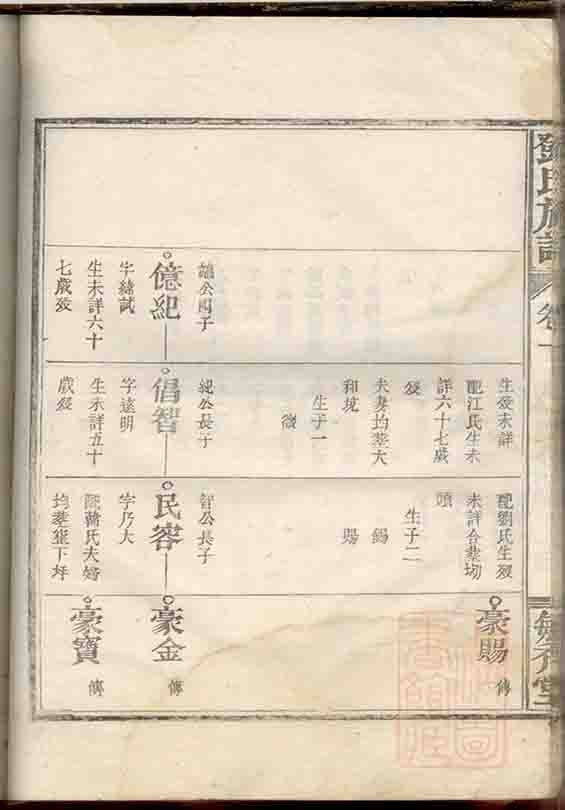 鄧氏族譜
卷一
生歿未詳
配江氏生未
詳六十七歲
歿
夫妻均葬大
和境
生子一
配劉氏生歿
未詳合葬坳
頭
生子二
錫
賜
豪賜
傳
公四子
億紀
字緒試
生未詳六十
七歲歿
紀公長子
倡智
字遠明
生未詳五十
歲歿
智公長子
民容
字乃大
氏夫婦
均葬崔下坪
豪金
傳
豪寶
傳